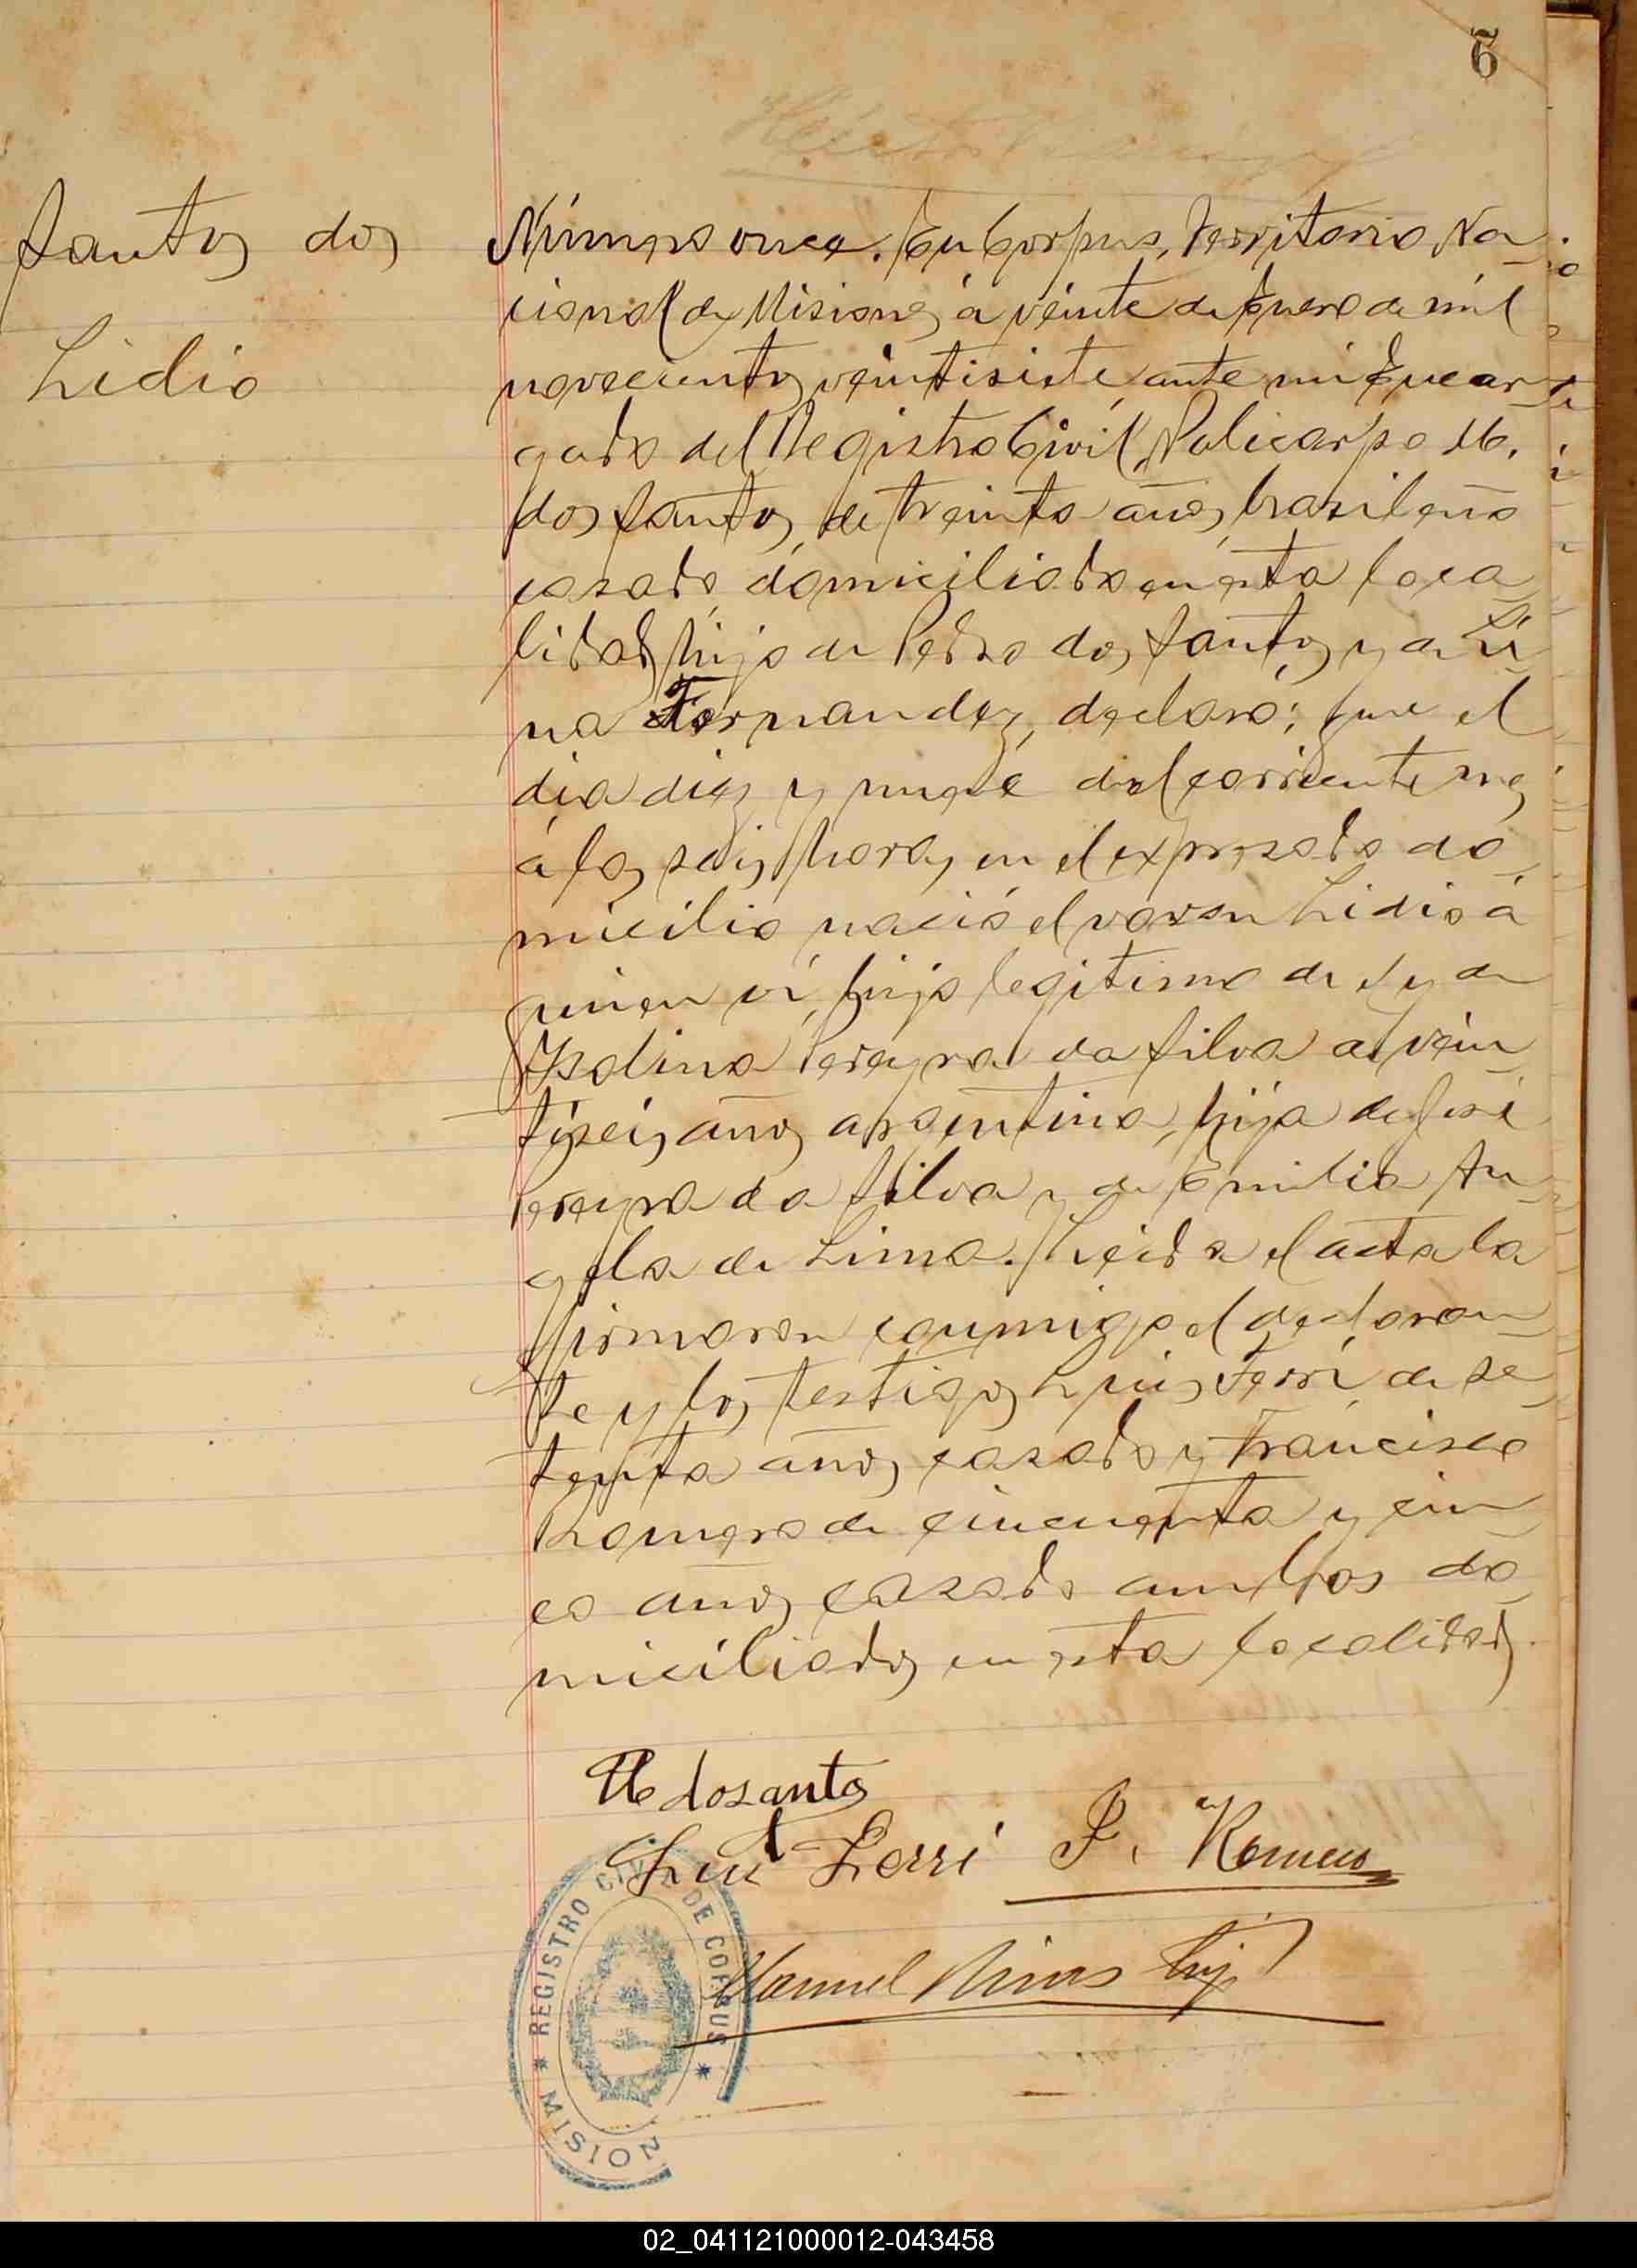 6
Santos dos
Lidio
Número once. En Corpus, Territorio Na-
cional de Misiones á veinte de Enero de mil
novecientos veintisiete, ante mí Encar-
gado del Registro Civil, Policarpo H.
dos Santos, de treinta años, brasileño
casado, domiciliado en esta loca-
lidad, hijo de Pedro dos Santos y de Li-
na Fernandez, declaró; que el
dia diez y nueve del corriente mes
á las seis horas, en el expresado do-
micilio nació el varon Lidio á
quien ví, hijo legitimo de el y de
Isolina Pereyra da Silva de vein-
tiseis años argentina, hija de José
Pereyra da Silva y de Emilia An-
gela de Lima. Leida el acta la
firmaron conmigo el declaran-
te y los testigos Luis Ferri de se-
tenta años, casado y Francisco
Romero de cincuenta y cin-
co años casado ambos do-
miciliados en esta localidad.
dosantos
Luis Ferri F. Romero
Manuel Rivas hijo
REGISTRO CIVIL DE CORPUS
MISION
02_041121000012-043458